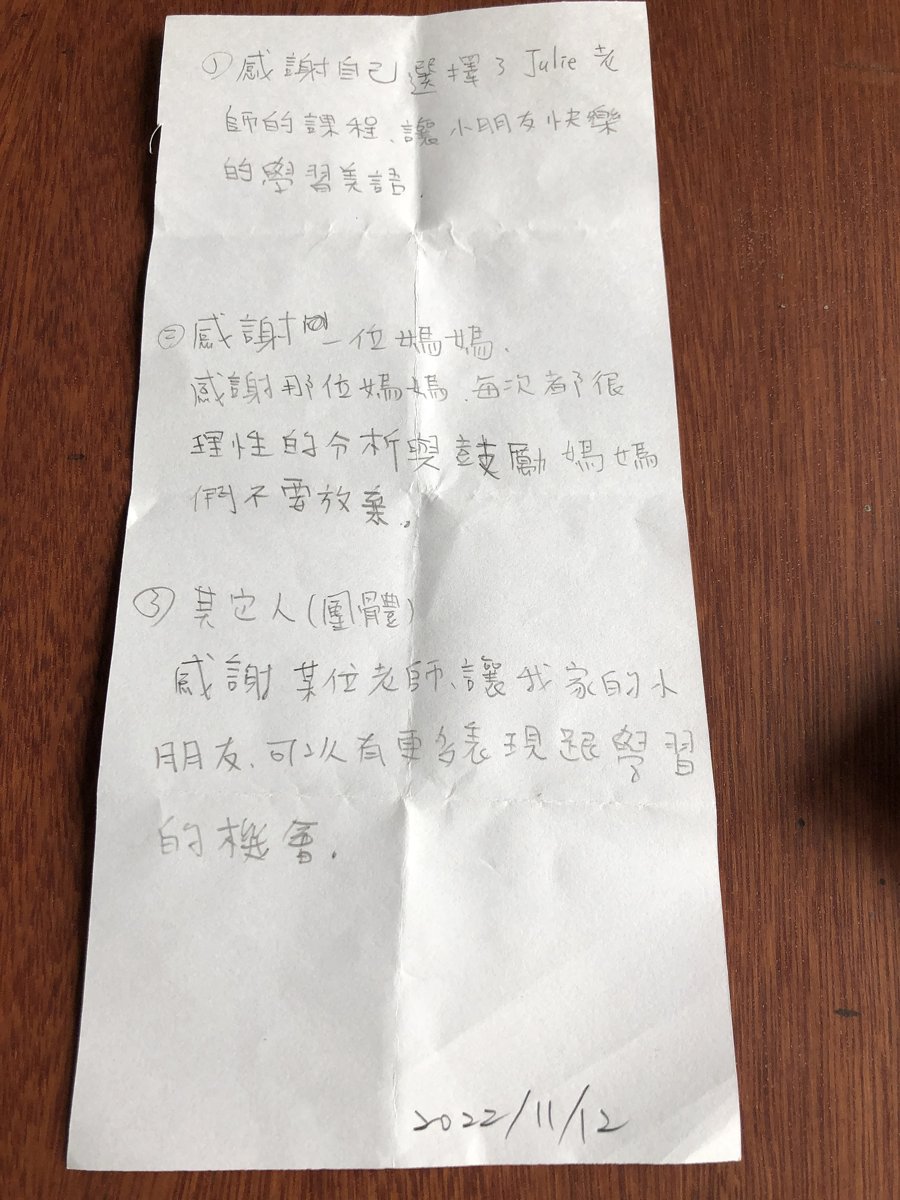 ① 感謝自己選擇了Julie老
師的課程、讓小朋友快樂
的學習美語.
② 感謝 一位媽媽.
感謝那位媽媽、每次都很
理性的分析與鼓勵媽媽
們不要放棄.
③ 其它人(團體)
感謝某位老師、讓我家的小
朋友、可以有更多表現跟學習
的機會.
2022/11/12